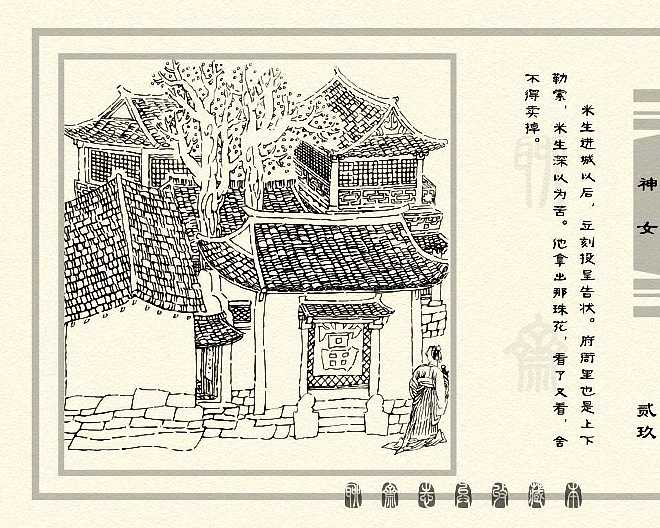 米生进城以后，立刻投呈告状。府衙里也是上下
勒索，米生深以为苦。他拿出那珠花，看了又看，舍
不得卖掉。
神女
贰玖
富